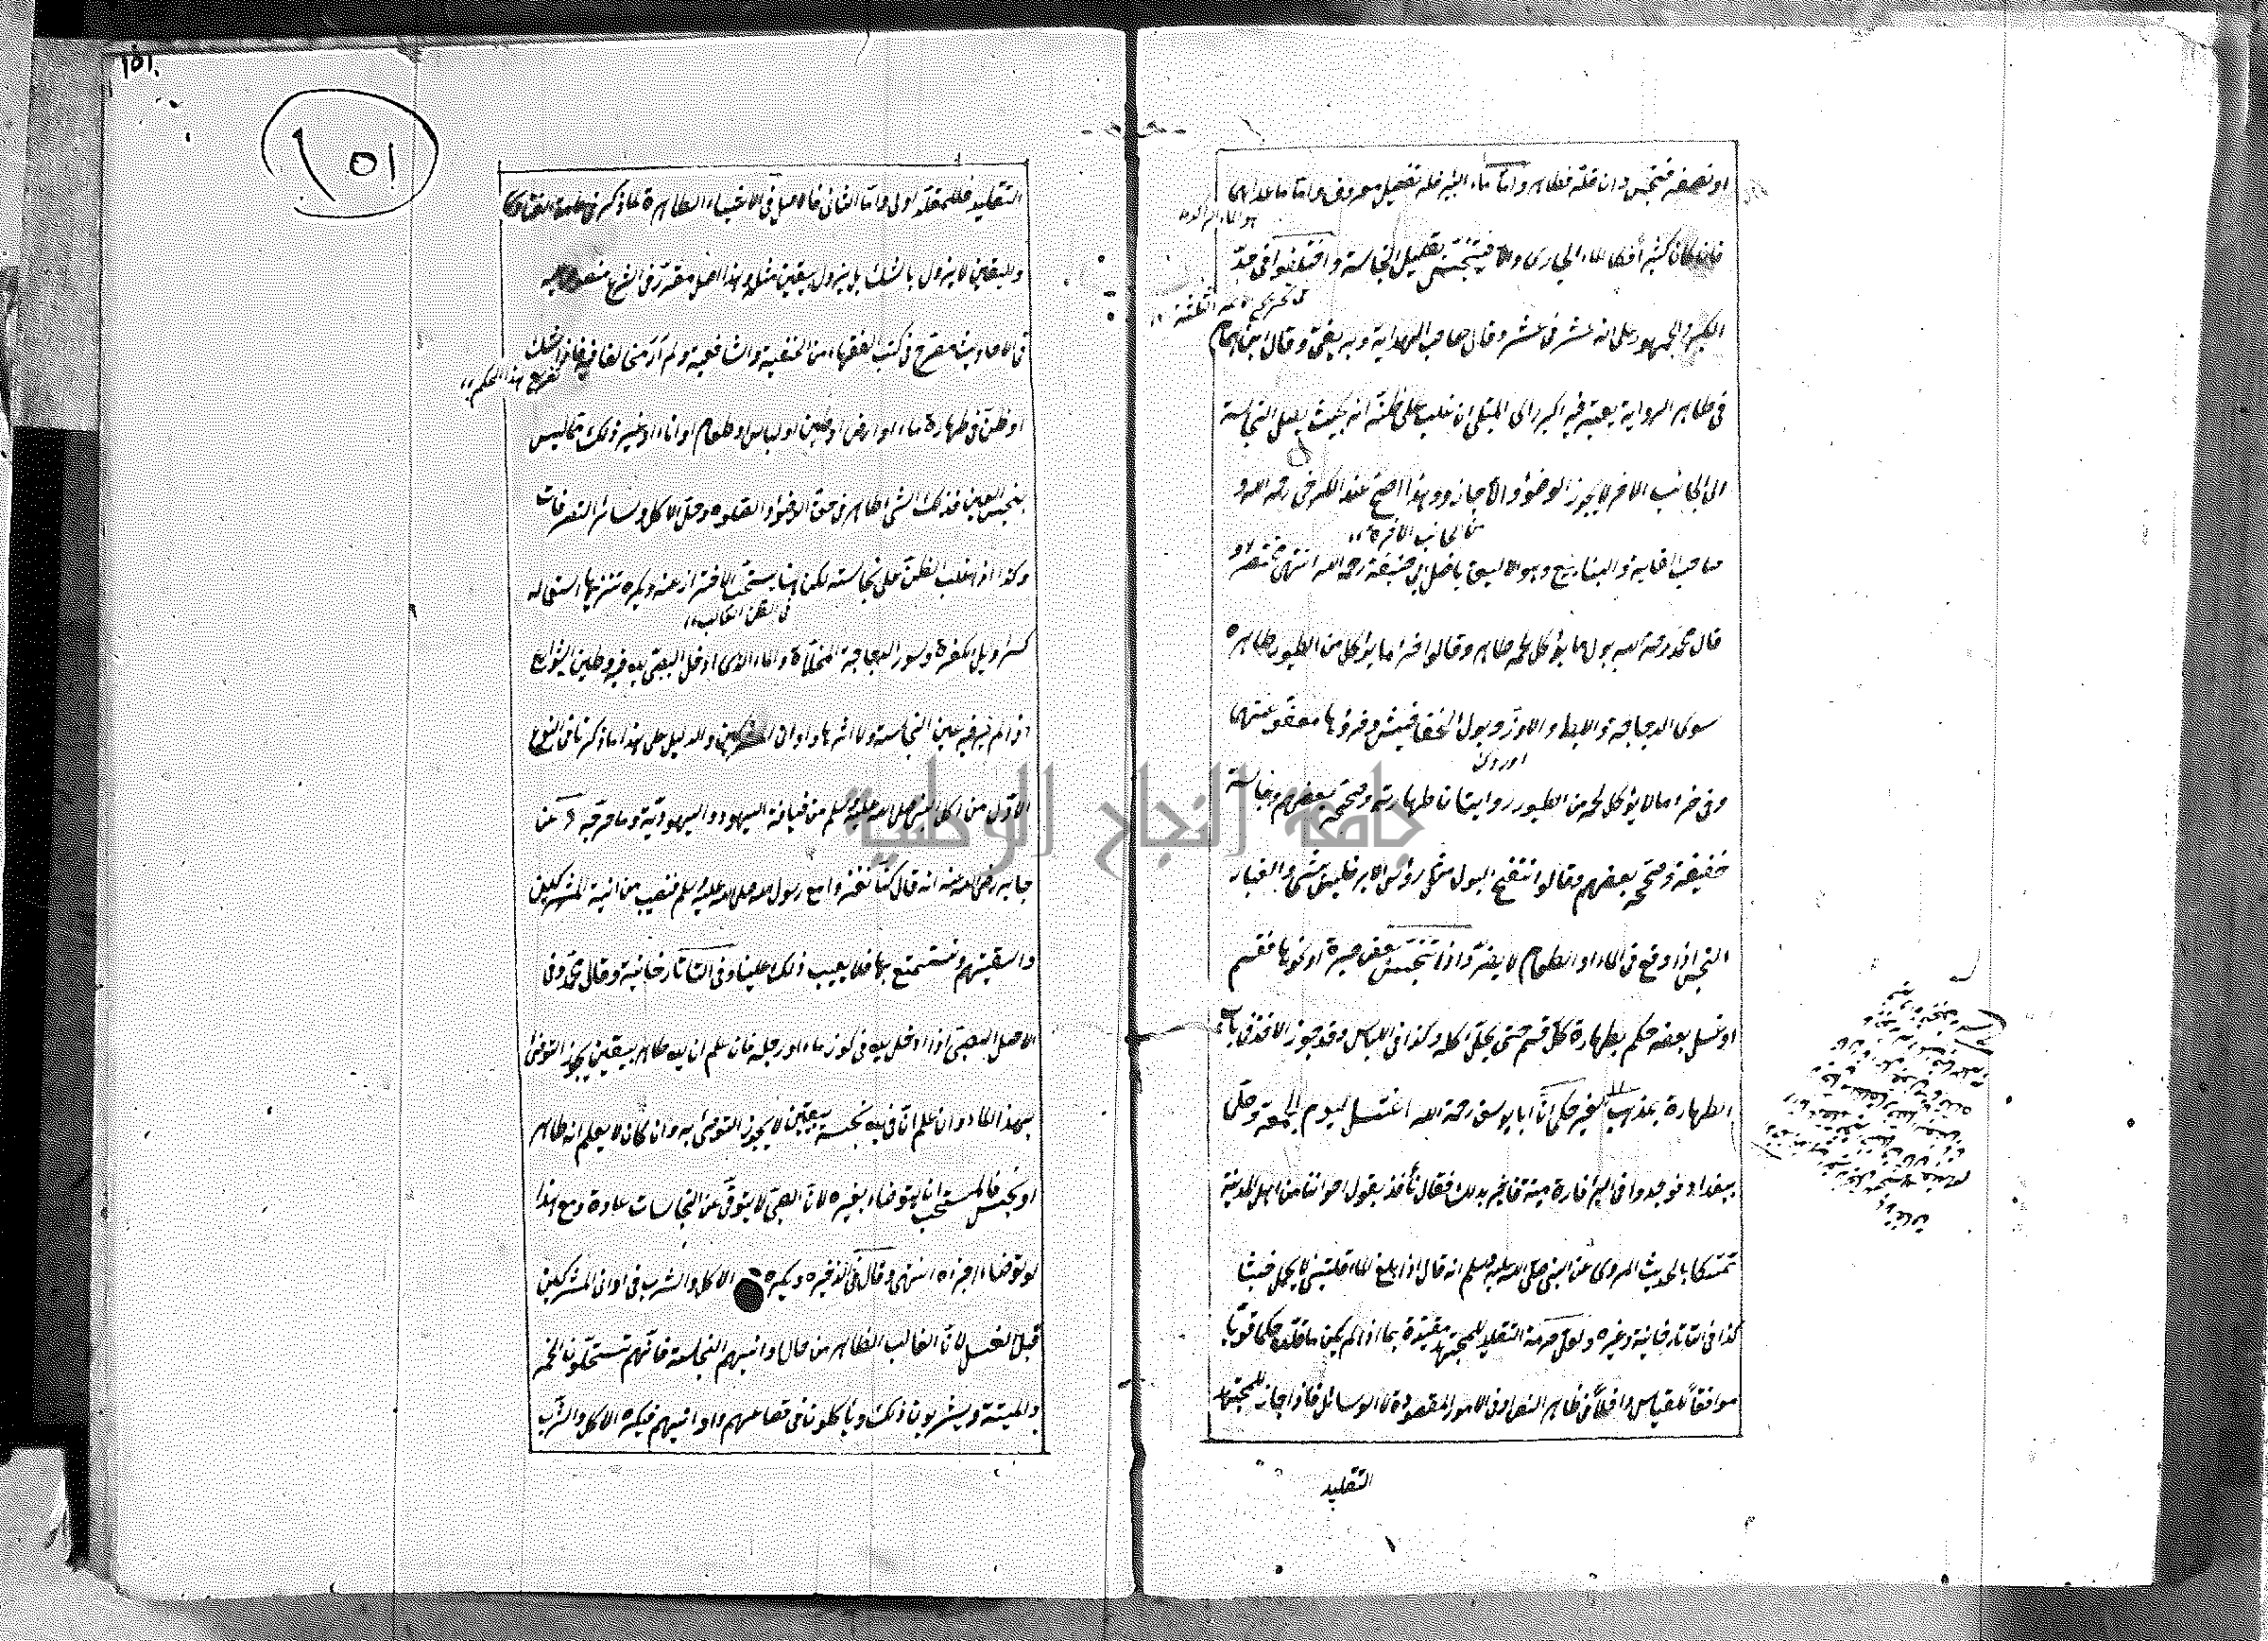 او نصفه فنجس وان قلة فطاهر واما ماء البئر فله تفصيل معروف واما ما عداهما
هو الماء الراكد
فان كان كثيرا فكالماء الجارى والا فيتنجس بقليل النجاسة واختلفوا فى حد
الكثير والجمهور على انه عشر فى عشر وقال صاحب الهداية وبه يفتى وقال ابن همام
فى ظاهر الرواية يعتبر فيه اكبر راى المبتلى ان غلب على ظنه انه بحيث يصل النجاسة
الى الجانب الاخر لا يجوز الوضوء والا جاز وهذا اصح عند الكرخى رحمه الله و
من الجانب الاخر
صاحب الغاية والينابيع وهو الاليق باصل ابى حنيفة رحمه الله انتهى مختصرا و
قال محمد رحمة الله بول ما يؤكل لحمه طاهر وقالوا خرء ما يؤكل من الطيور طاهرة
سوى الدجاجة والبط والاوز وبول الخفافيش وخرؤها معفو عنهما
اوردك
وفى خرء ما لا يؤكل لحمه من الطيور روايتان طهارته وصححه بعضهم ونجاسة
خفيفة وصححه بعضهم وقالوا انتضح البول مثل رؤس الابر فليس بشئ والغبار
النجس اذا وقع فى الماء او الطعام لا يضر واذا تنجس بعض صبرة او نحوها فقسم
او غسل بعضه حكم بطهارة كل قسم حتى يحل اكله وكذا فى اللباس وقد جوز الاخذ فى باب
الطهارة بمذهب الغير حكى ان ابا يوسف رحمة الله اغتسل ليوم الجمعة وصلى
ببغداد فوجدوا فى البئر فارة ميتة فاخبر بذلك فقال ناخذ بقول اخواننا من اهل المدينة
تمسكا بالحديث المروى عن النبى صلى الله عليه وسلم انه قال اذا بلغ الماء قلتين لا يحمل خبثا
كذا فى التاتارخانية وغيره ولعل حرمة التقليد للمجتهد مقيدة بما اذا لم يكن ما قلده حكما قويا
موافقا للقياس داخلا فى ظاهر النص او فى الامور المقصودة لا الوسائل فاذا جاز للمجتهد
التقليد
١٥١
١٥١
التقليد فللمقلد اولى واما الثانى فالاصل فى الاشياء الطهارة لما ذكر فى عامة الفتاوى
واليقين لا يزول بالشك بل يزول بيقين مثله وهذا اصل مقرر فى الشرع منصوص عليه
فى الاحاديث مصرح فى كتب الفقهاء من الحنفية والشافعية ولم ار من خالف فيه فاذا شك
تفريع هذا الحكم
او ظن فى طهارة ماء او ارض او طين او لباس او طعام او اناء او غير ذلك مما ليس
بنجس العين فذلك الشئ طاهر فى حق الوضوء والصلوة وحل الاكل وسائر التصرفات
وكذا اذا غلب الظن على نجاسته لكن هنا يستحب الاحتراز عنه ويكره تنزيها استعماله
فى الظن الغالب
كسراويل الكفرة وسور الدجاجة المخلاة والماء الذى ادخل الصبى يده فيه وطين الشوارع
اذا لم ير فيه عين النجاسة ولا اثرها واوانى المشركين والدليل على هذا ما ذكرنا فى النوع
الاول من اكل النبى صلى الله عليه وسلم من ضيافة اليهود واليهودية وما خرجه د عن
جابر رضى الله عنه انه قال كنا نغزوا مع رسول الله صلى الله عليه وسلم فنصيب من انية المشركين
واسقيتهم ونستمتع بها فلا يعيب ذلك علينا وفى التاتارخانية وقال محمد وفى
الاصل الصبى اذا ادخل يده فى كوز ماء او رجله فان علم ان يده طاهر بيقين يجوز التوضئ
بهذا الماء وان علم ان فى يده نجسة بيقين لا يجوز التوضئ به وان كان لا يعلم انه طاهر
او نجس فالمستحب ان يتوضاء بغيره لان الصبى لا يتوقى عن النجاسات عادة ومع هذا
لو توضاء اجزاه انتهى وقال فى الذخيره ويكره الاكل والشرب فى اوانى المشركين
قبل الغسل لان الغالب الظاهر من حال اوانيهم النجاسة فانهم يستحلون الخمر
والميتة ويشربون ذلك وياكلون فى قصاعهم واوانيهم فيكره الاكل والشرب
جامعة النجاح الوطنية